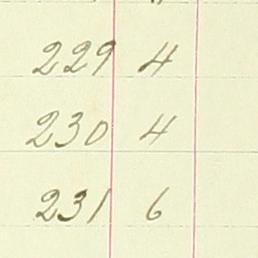 229 4
230 4
231 6